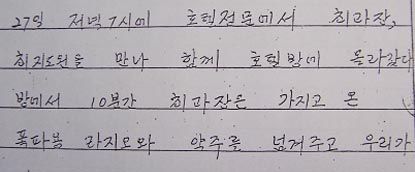 27일 저녁 7시에 호텔정문에서 최과장,
최지도원을 만나 함께 호텔방에 올라갔다
방에서 10분가 최과장은 가지고 온
폭파용 라지오와 약주를 넘겨주고 우리가